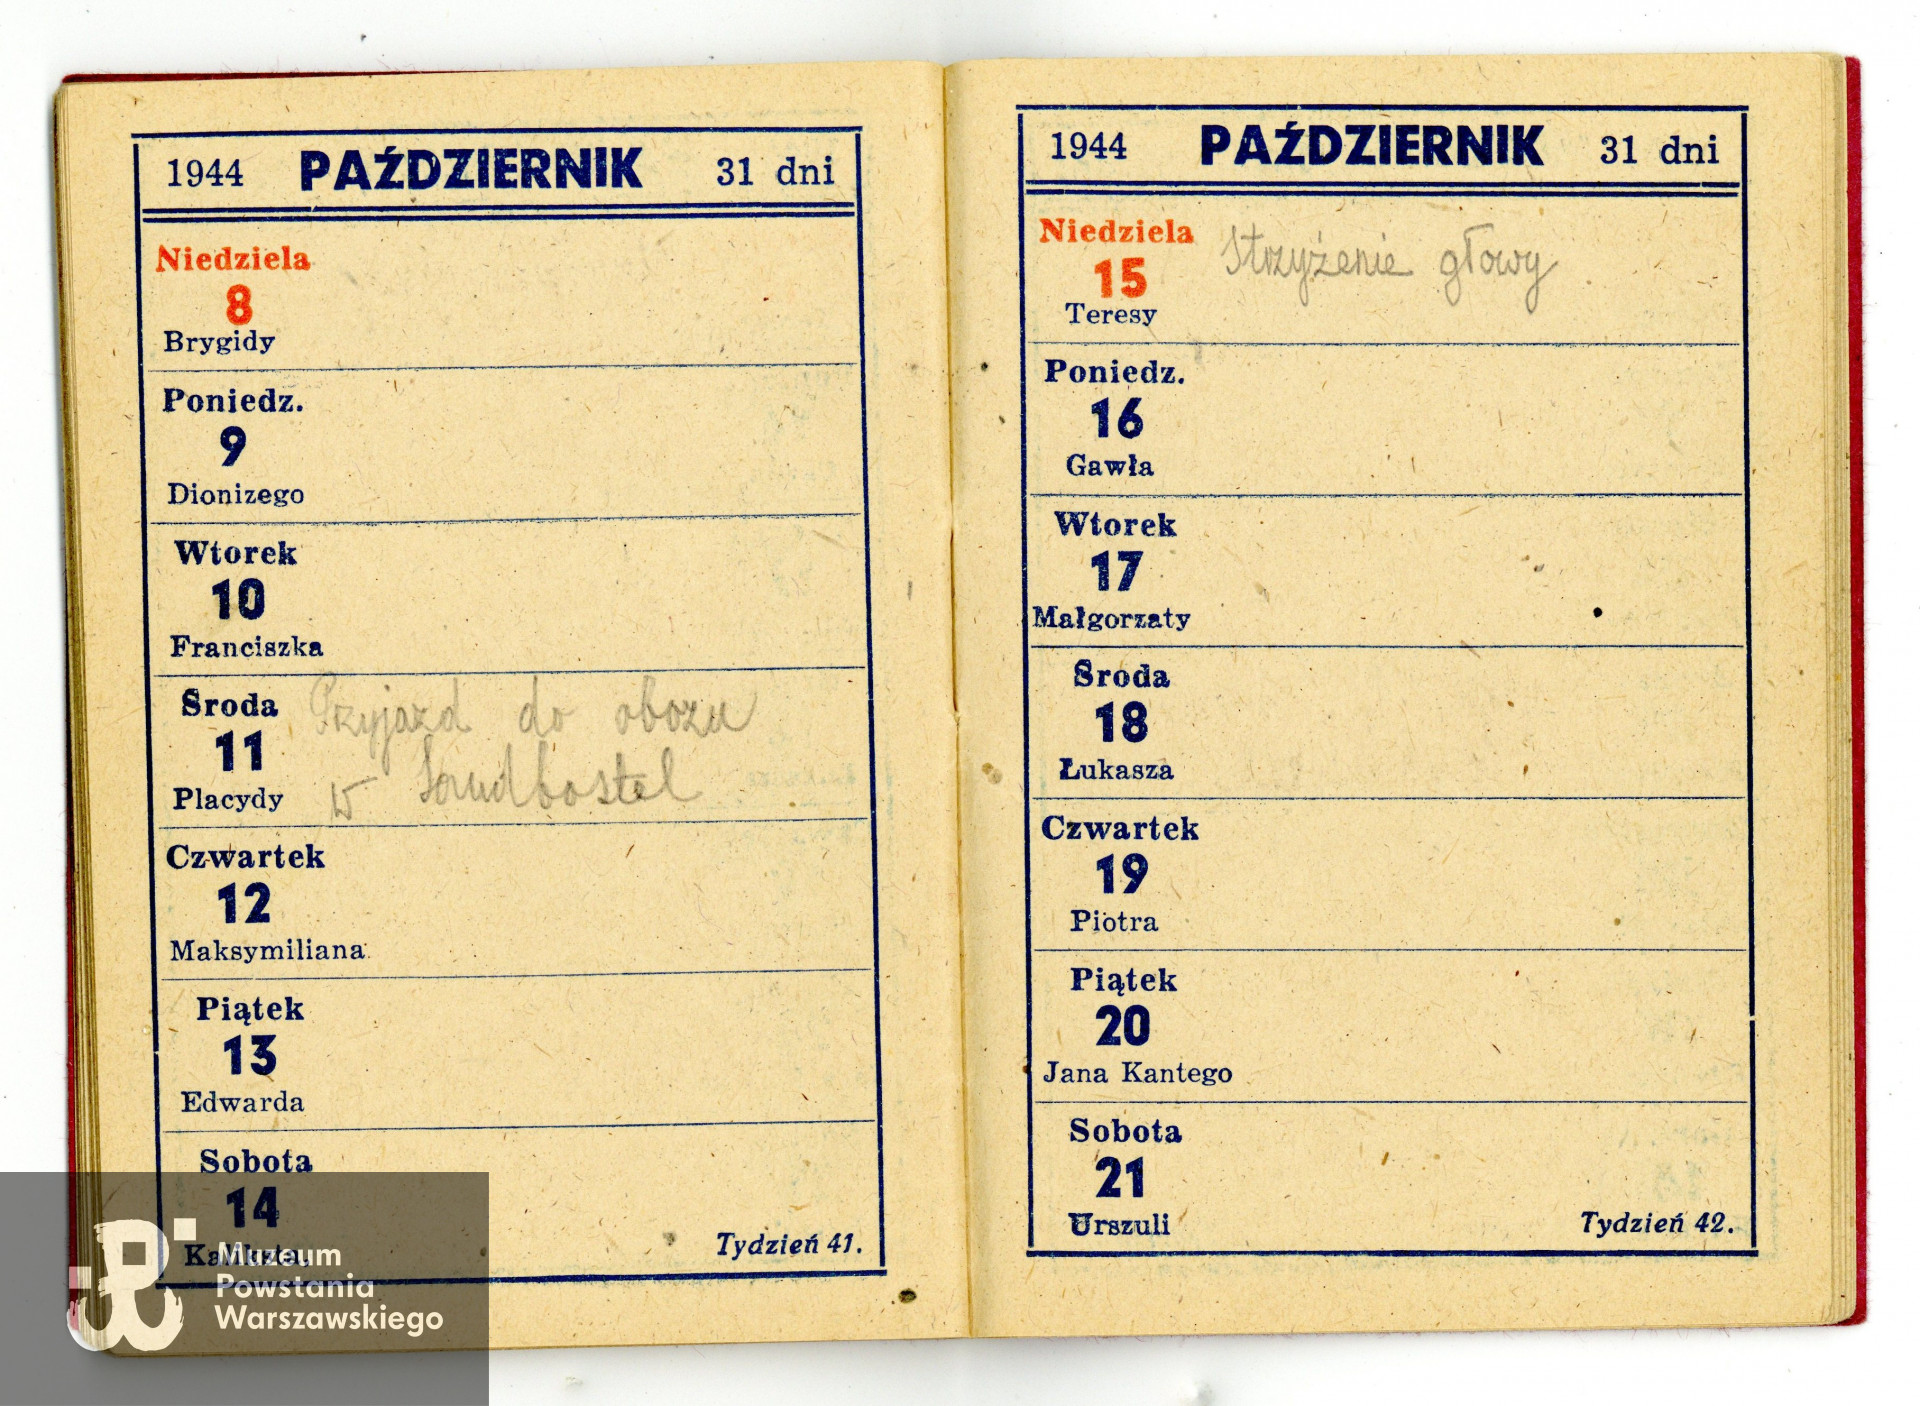 1944 PAŹDZIERNIK 31 dni
Niedziela
8
Brygidy
Poniedz.
9
Dionizego
Wtorek
10
Franciszka
Sroda
11
Placydy
Przyjazd do obozu
w Sandbostel
Czwartek
12
Maksymiliana
Piątek
13
Edwarda
Sobota
14
Tydzień 41.
1944 PAŹDZIERNIK 31 dni
Niedziela
15
Teresy
Strzyżenie głowy
Poniedz.
16
Gawła
Wtorek
17
Małgorzaty
Sroda
18
Łukasza
Czwartek
19
Piotra
Piątek
20
Jana Kantego
Sobota
21
Urszuli
Tydzień 42.
Muzeum
Powstania
Warszawskiego